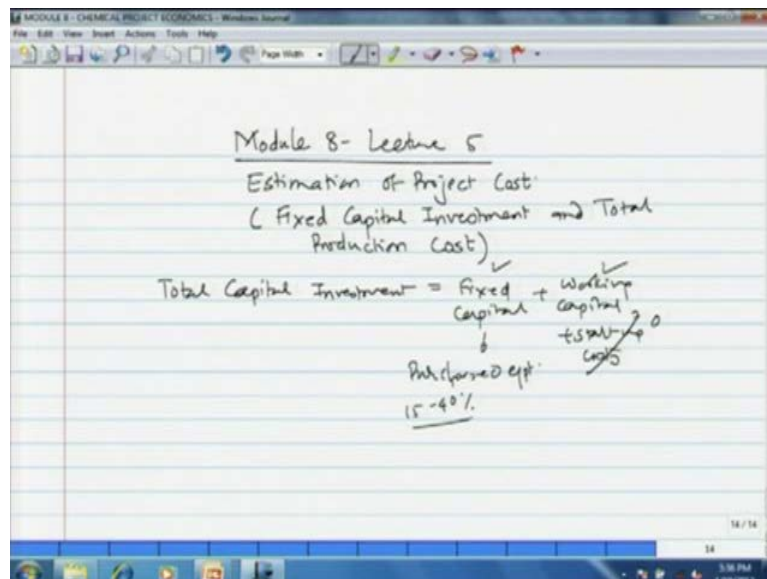 MODULE 8 - CHEMICAL PROJECT ECONOMICS - Windows Journal
File Edit View Insert Actions Tools Help
Page Width
Module 8- Lecture 5
Estimation of Project Cost
( Fixed Capital Investment and Total
Production Cost)
Total Capital Investment = Fixed + Working
Capital capital
+ Start-up 0
Costs
Purchased eqpt.
15-40%
14 / 14
14
5:36 PM